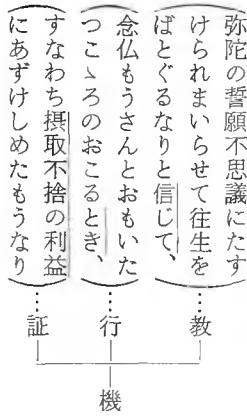 弥陀の誓願不思議にたす
けられまいらせて往生を
ばとぐるなりと信じて、
念仏もうさんとおもいた
つこゝろのおこるとき、
すなわち摂取不捨の利益
にあずけしめたもうなり
教
行
証
機